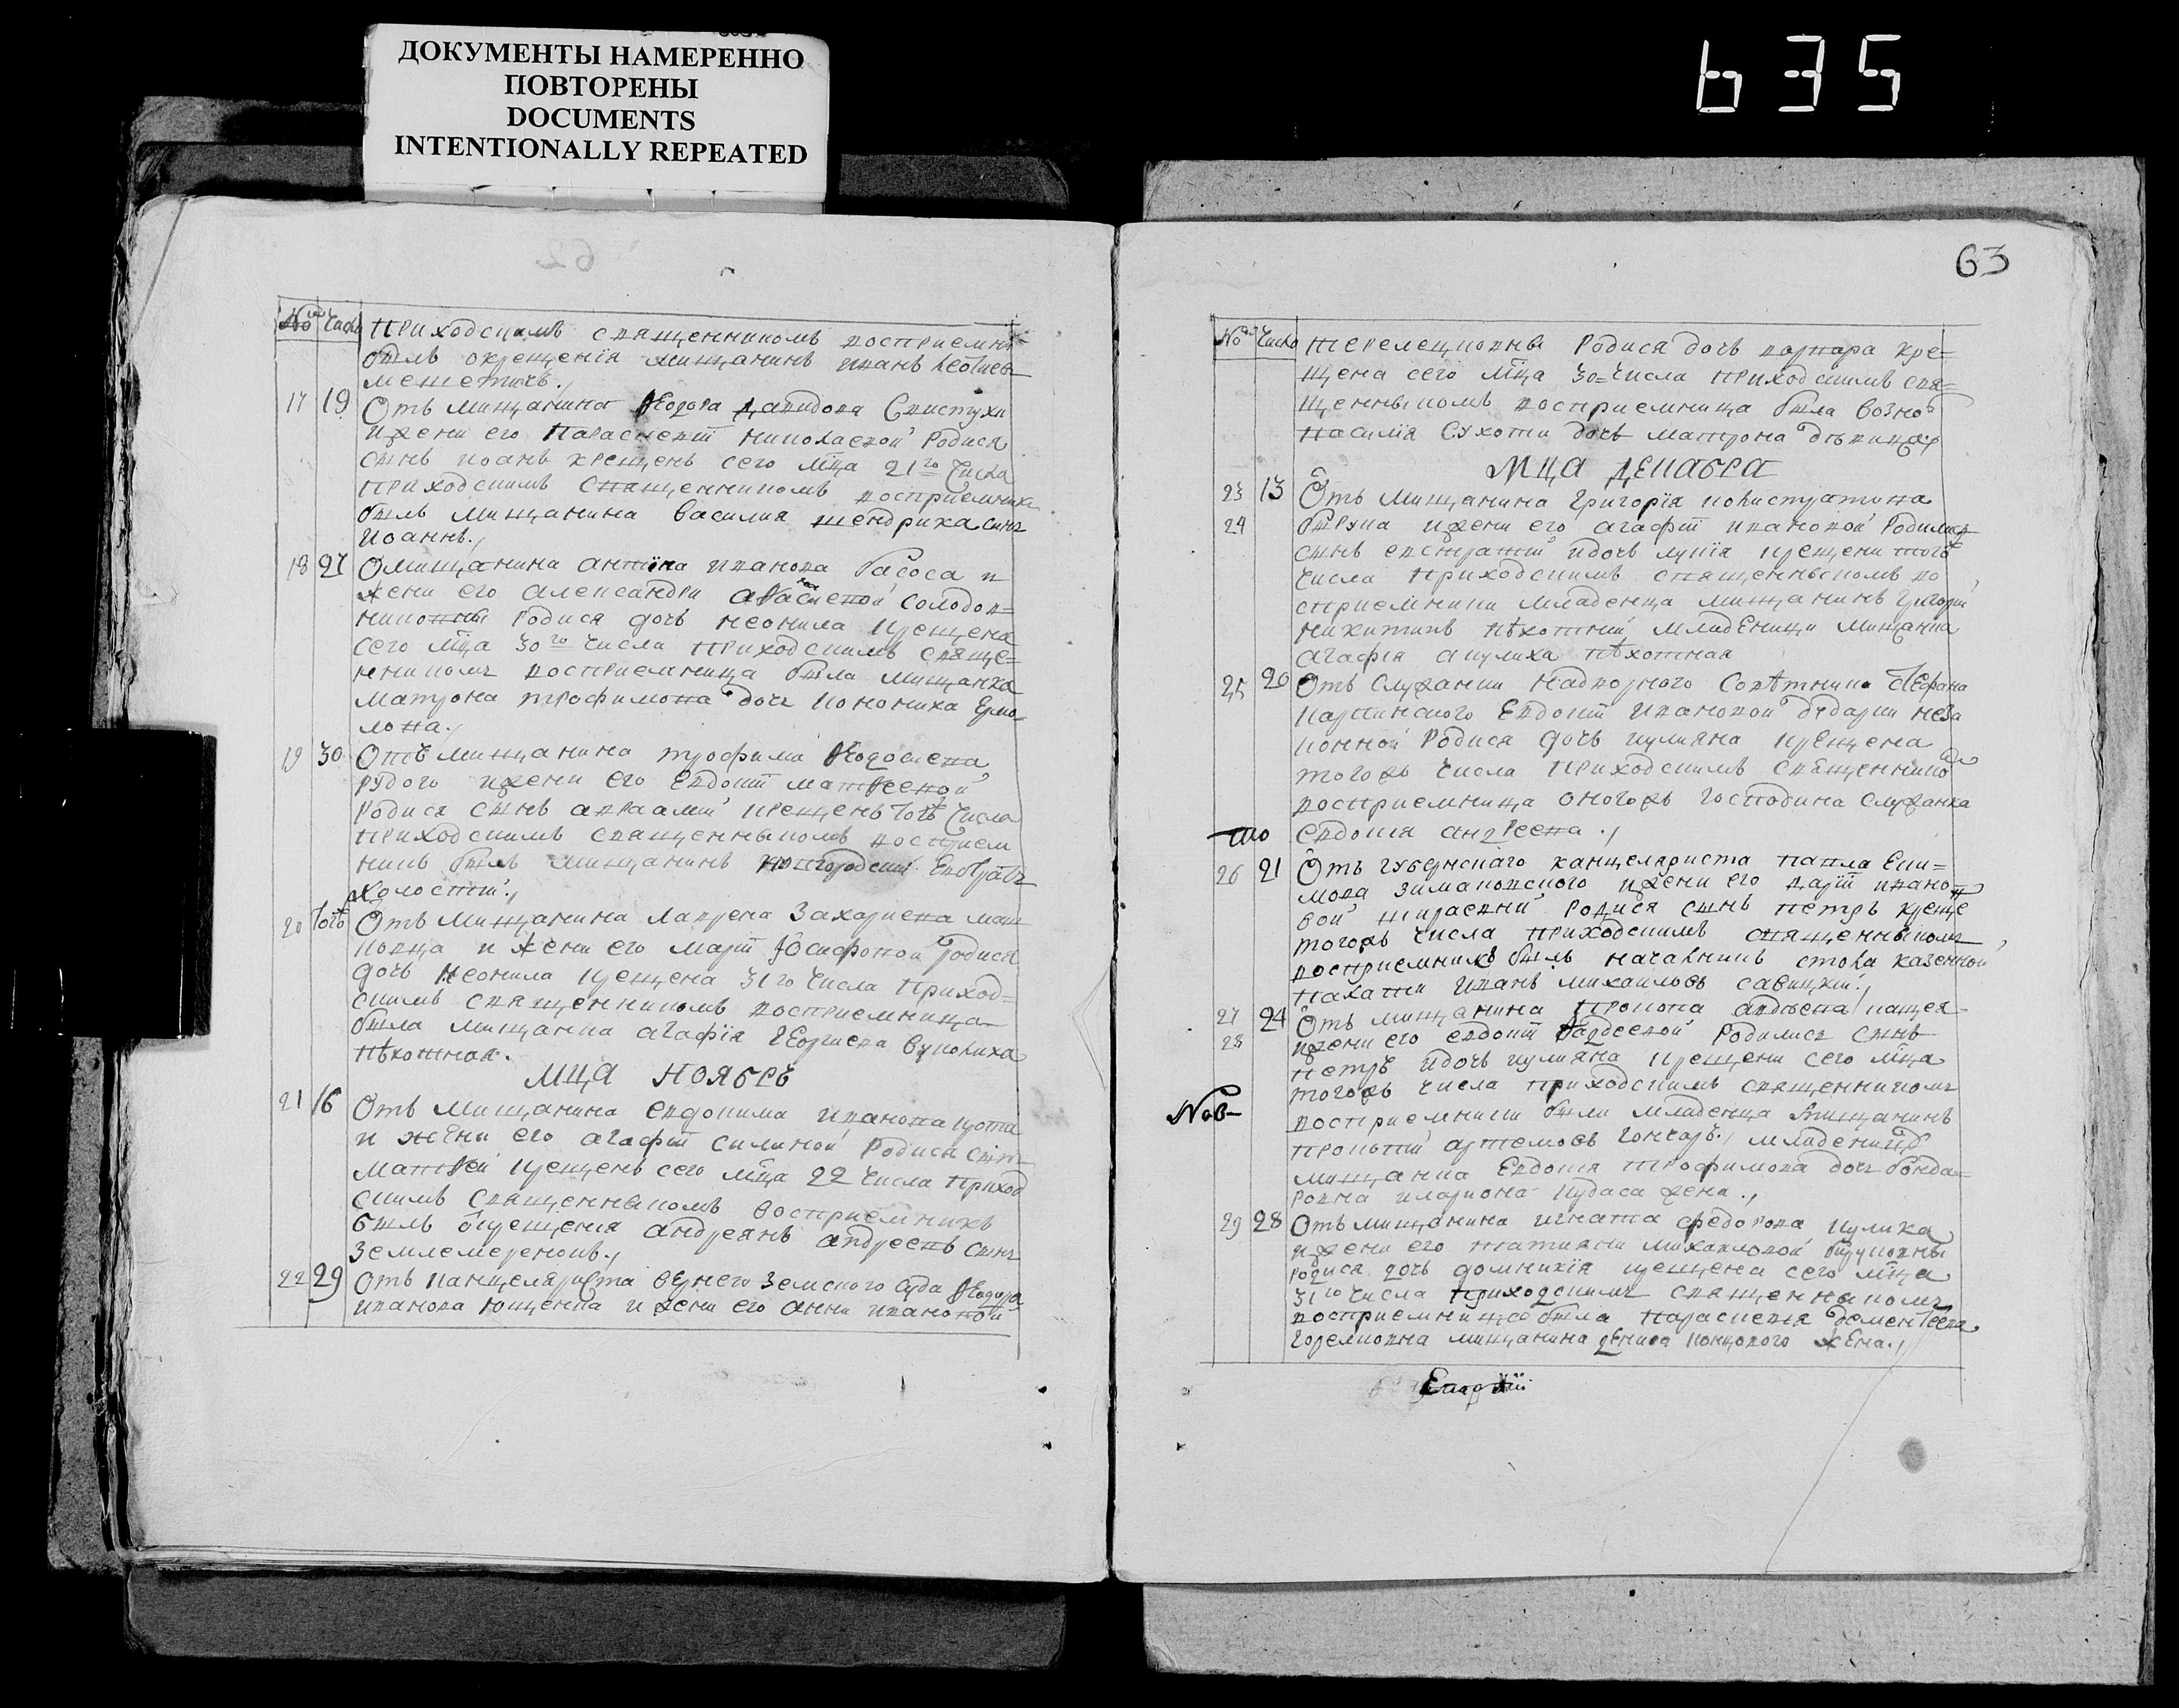 ДОКУМЕНТЫ НАМЕРЕННО
ПОВТОРЕНЫ
DOCUMENTS
INTENTIONALLY REPEATED
635
62
No Числа
приходскимъ священникомъ восприемни
былъ окрещенїя мищанинъ иванъ
17 19 Отъ мищанина Ѳеодора давидова Свистухи
ижени его Параскевїи николаевой родися
сынъ иоанъ крещенъ сего мца 21го числа
приходскимъ священникомъ восприемникъ
былъ мищанина василия шендрика синъ
иоаннъ.,
18 27 Омищанина антона иванова баcоса и
жени его александри солодов=
никовны родися дочь неонила крещена
сего мца 30го числа приходскимъ свяще=
нникомъ восприемница была мищанка
матрона трофимова дочь кононика ермо
лова.,
19 30 Отъ мищанина трофима Ѳеодосиева
рудого ижени его евдокїи матвеевой
родися сынъ авраамїй крещенъ тогожъ числа
приходскимъ священныкомъ восприем
никъ былъ мищанинъ
холостїй.,
20 тогожъ Отъ мищанина лаврена захариева
и жени его марїи юсифовой родися
дочь неонила крещена 31го числа приход=
скимъ священникомъ восприемница
была мищанка агафїя георгиева
пѣхотная.
МЦА НОЯБРЬ
21 16 Отъ мищанина евдокима иванова крота
и жени его агафїи силиной родися синъ
матвей крещенъ сего мца 22 числа приход
скимъ священныкомъ восприемникъ
былъ окрещения андреянъ андреевъ синъ
землемеренокъ.,
22 29 Отъ канцеляриста вернего земского суда Ѳеодора
иванова ющенка и жени его анни ивановой
63
No Числа
терелецковны родися дочь варвара кре=
щена сего мца 30= числа приходскимъ свя=
щенныкомъ восприемница была возного
василїя сухоти дочь матрона дѣвица.,
МЦА ДЕКАБРА
23 13 Отъ мищанина григорїя
24 бирука ижени его агафїи ивановой родились
сынъ евстратїй идочь лукїя крещени того
числа приходскимъ священныкомъ во
сприемники младенца мищанинъ григорїй
никитинъ пѣхотний, младеници мищанка
агафїя акулиха пѣхотная
25 20 Отъ служанки надворного совѣтника стефана
парпинского евдокїи ивановой бударки неза
конной родися дочь иулияна крещена
тогожъ числа приходскимъ священнико
восприемница оногожъ господина служанка
евдокия андреева.,
26 21 Отъ губернскаго канцеляриста павла еки=
мова зимановского ижени его дарїи ивано
вой родися сынъ петръ креще
тогожъ числа приходскимъ священныкомъ
восприемникъ былъ началникъ стола казенной
палати иванъ михаиловъ савицкїй.,
27 24 Отъ мищанина прокопа авдѣева кащея
28 ижени его евдокїи родилися сынъ
петръ идочь иулияна крещени сего мца
тогожъ числа приходскимъ священникомъ
восприемники были младенца мищанинъ
прокопїй артемовъ гончаръ., младеници
мищанка евдокия трофимова дочь бонда=
ровна илариона кудаса жена.,
29 28 Отъ мищанина игната федорова кулика
ижени его татияни михаиловой бируковны
родися дочь домникїя крещена сего мца
31го числа приходскимъ священныкомъ
восприемницею была параскевия дементеева
горемковна мищанина дениса концового жена.,